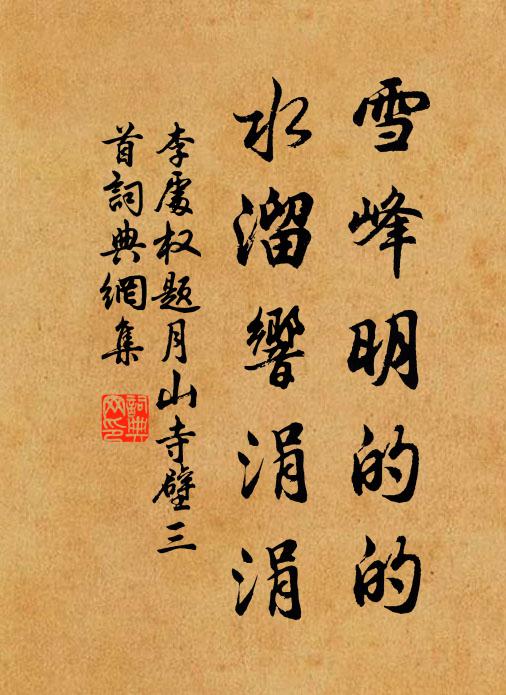 雪峰明的的
水溜響涓涓
李處權題月山寺壁三
首詞典網集
詞典
网印